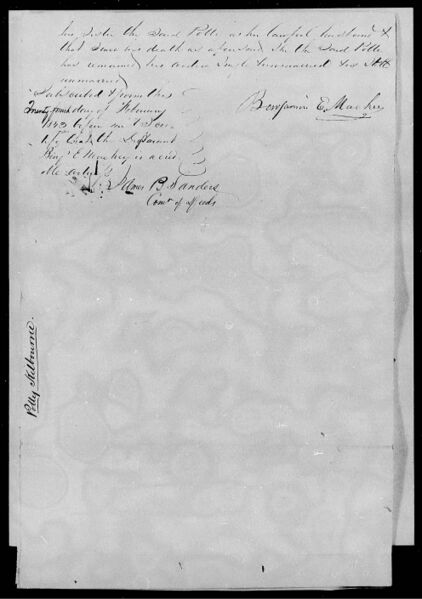 his sister the said Polly as her lawful husband &
that since his death as aforesaid she the said Polly
has remained his widow single unmarried & is still
unmarried
Subscribed & sworn this
Twenty fourth day of February
before me & I cer-
tify that the Deponant
Benj. E Mackey is a cred-
ible
Benjamin E. Mackey
B Sanders
Com. of deeds
Polly Kilbourne.